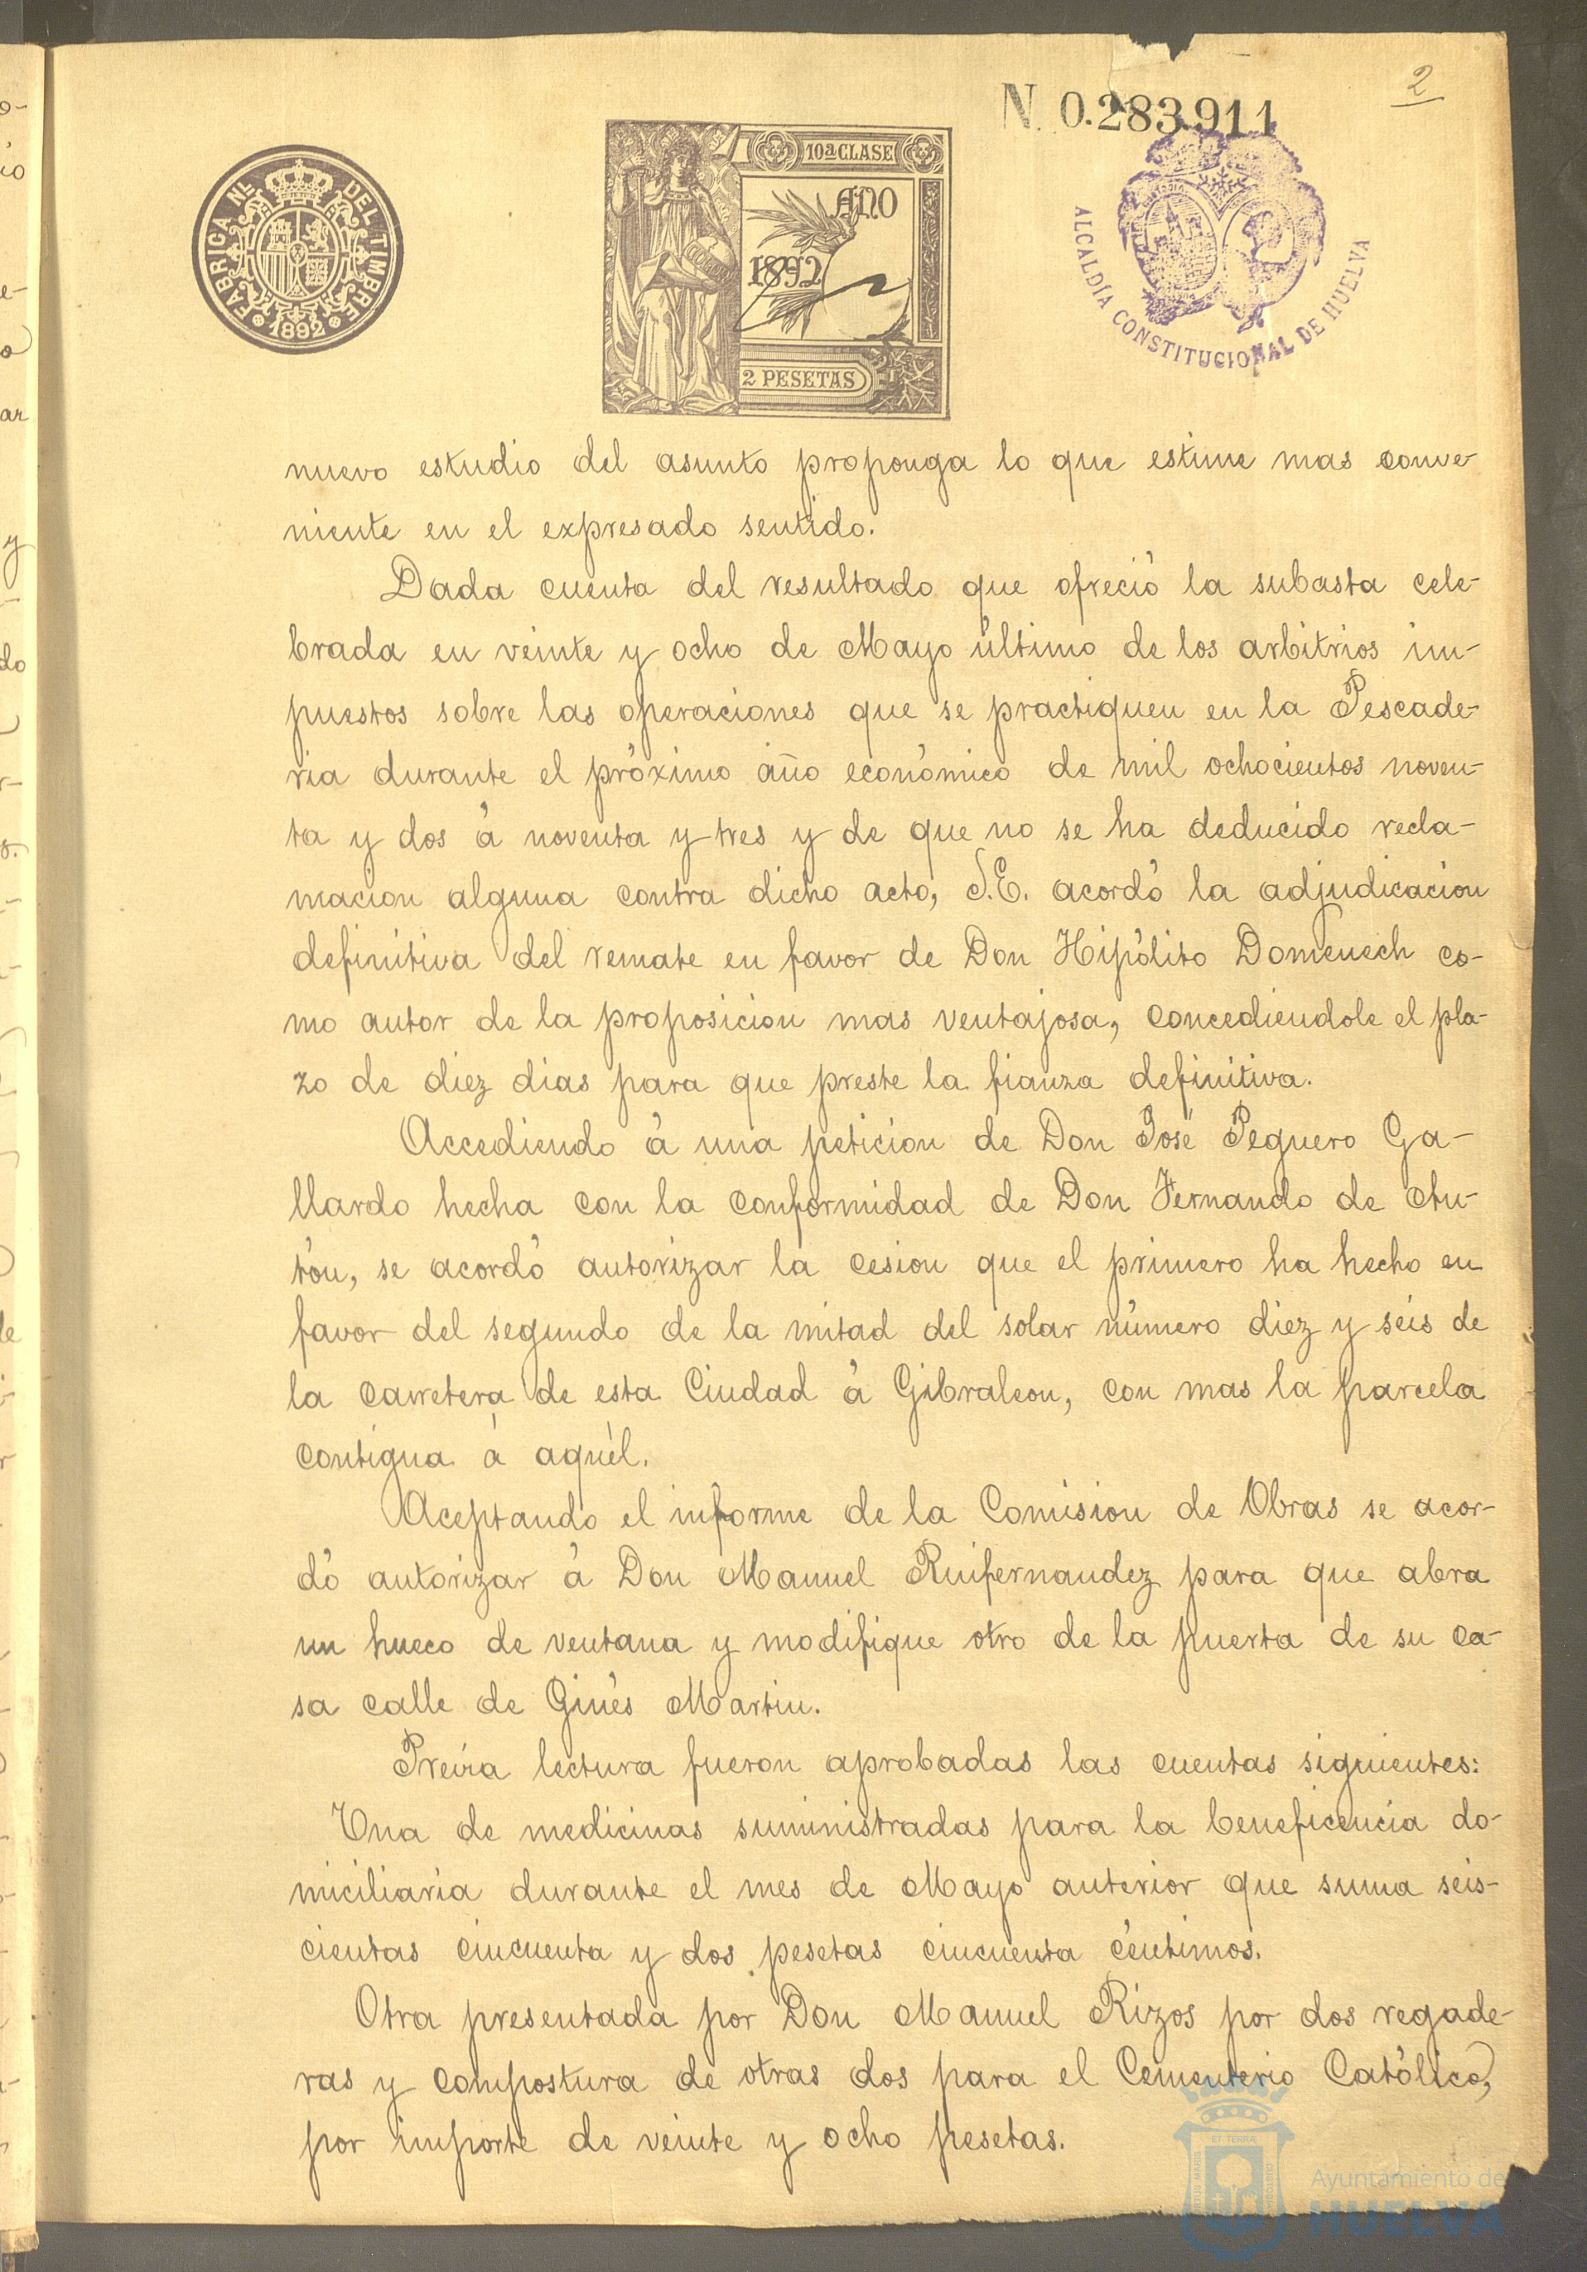 2
N. 0.283.911
FABRICA NL. DEL TIMBRE
1892
10ª CLASE
AÑO
1892
2 PESETAS
ALCALDÍA CONSTITUCIONAL DE HUELVA
nuevo estudio del asunto proponga lo que estime mas conve-
niente en el expresado sentido.
Dada cuenta del resultado que ofreció la subasta cele-
brada en veinte y ocho de Mayo último de los arbitrios im-
puestos sobre las operaciones que se practiquen en la Pescade-
ria durante el próximo año económico de mil ochocientos noven-
ta y dos á noventa y tres y de que no se ha deducido recla-
macion alguna contra dicho acto, S.E. acordó la adjudicacion
definitiva del remate en favor de Don Hipólito Domenech co-
mo autor de la proposicion mas ventajosa, concediendole el pla-
zo de diez dias para que preste la fianza definitiva.
Accediendo á una peticion de Don José Peguero Ga-
llardo hecha con la conformidad de Don Fernando de
tón, se acordó autorizar la cesion que el primero ha hecho en
favor del segundo de la mitad del solar número diez y seis de
la carretera de esta Ciudad á Gibraleon, con mas la parcela
contigua á aquél.
Aceptando el informe de la Comision de Obras se acor-
dó autorizar á Don Manuel Ruifernandez para que abra
un hueco de ventana y modifique otro de la puerta de su ca-
sa calle de Ginés Martin.
Prévia lectura fueron aprobadas las cuentas siguientes:
Una de medicinas suministradas para la beneficencia do-
miciliaria durante el mes de Mayo anterior que suma seis-
cientas cincuenta y dos pesetas cincuenta céntimos.
Otra presentada por Don Manuel Rizos por dos regade-
ras y compostura de otras dos para el Cementerio Católico,
por importe de veinte y ocho pesetas.
Ayuntamiento de
HUELVA